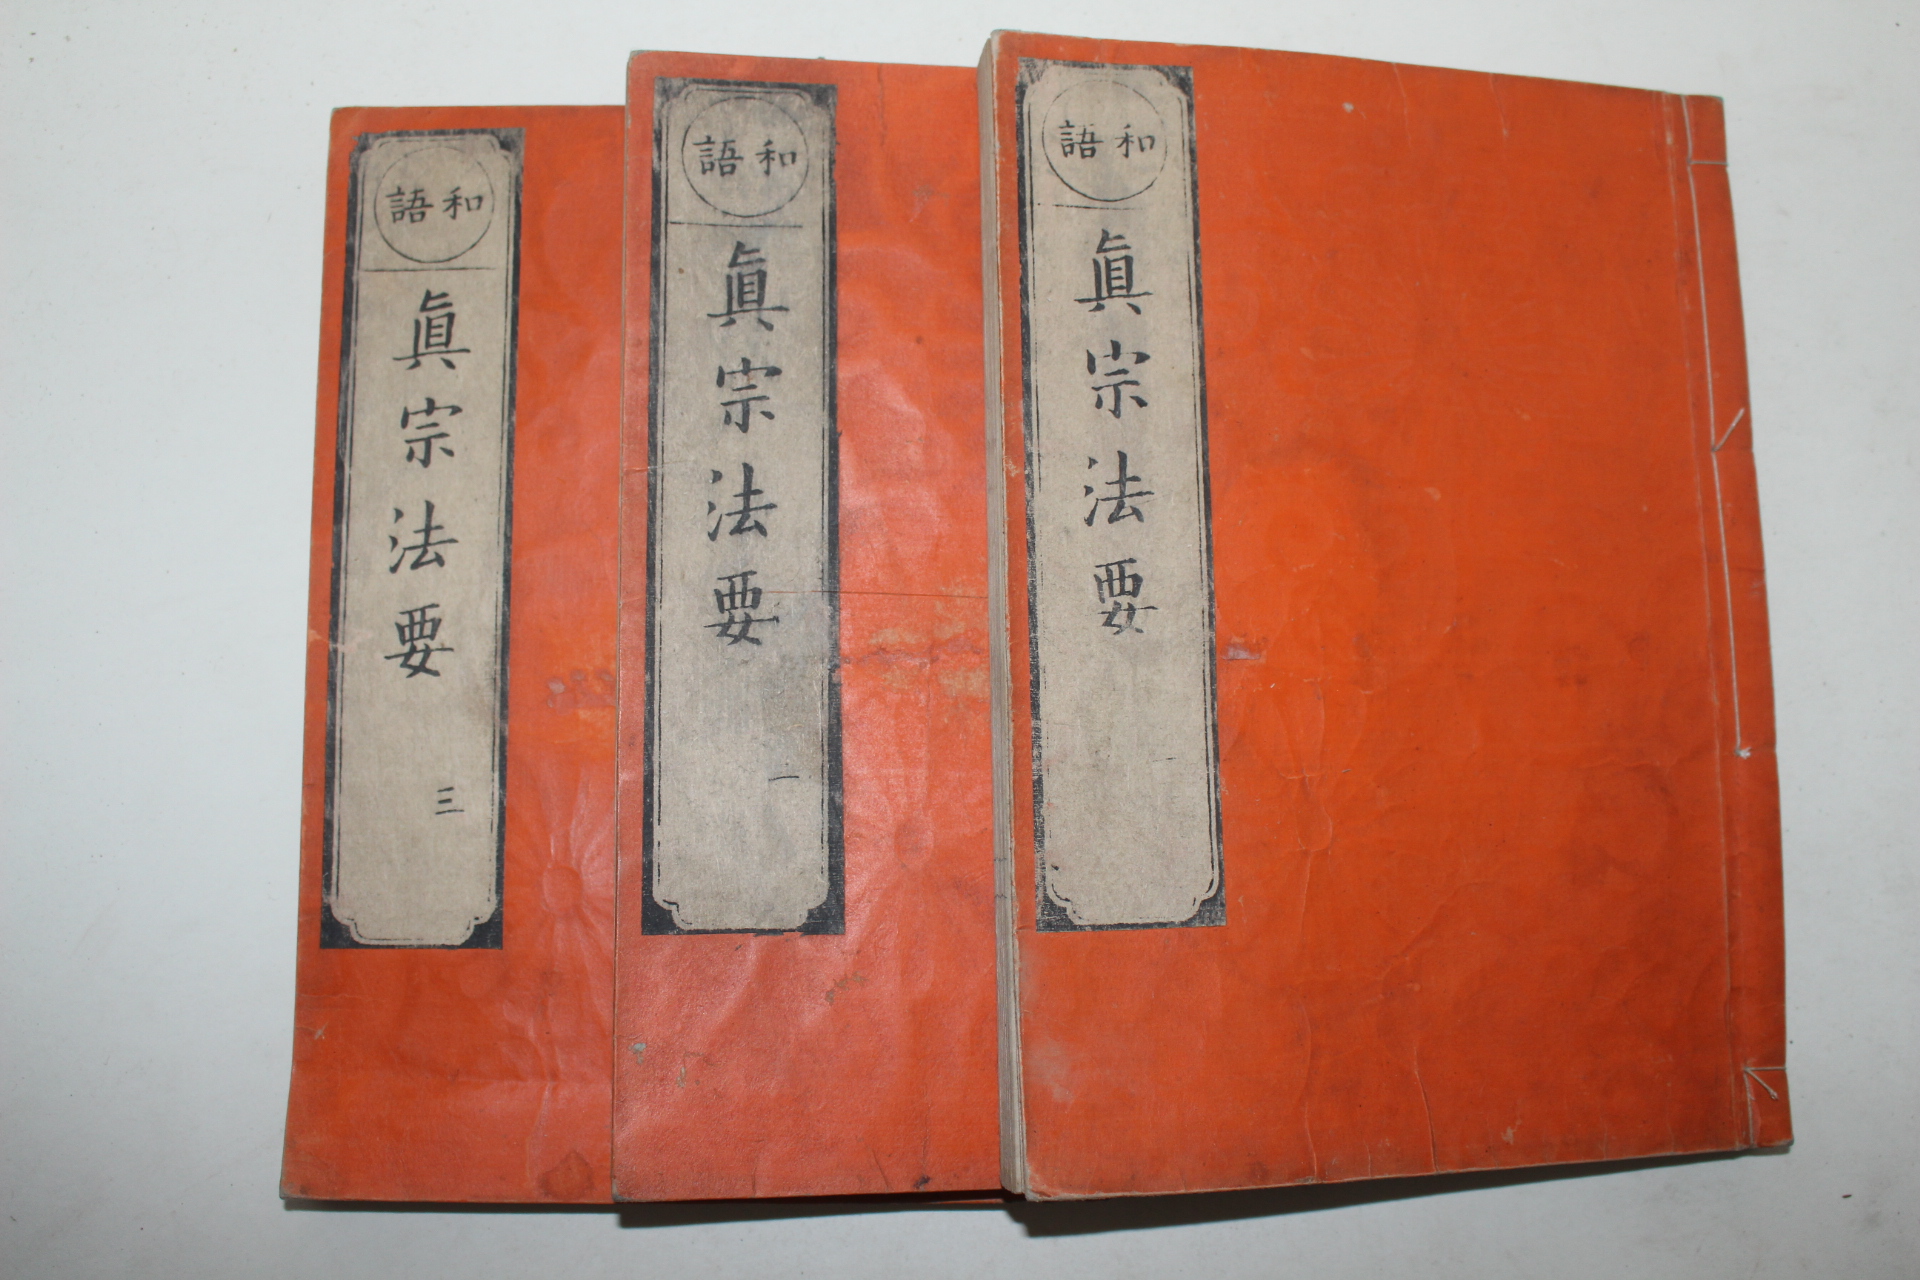 和語
眞宗法要
一
和語
眞宗法要
一
和語
眞宗法要
三